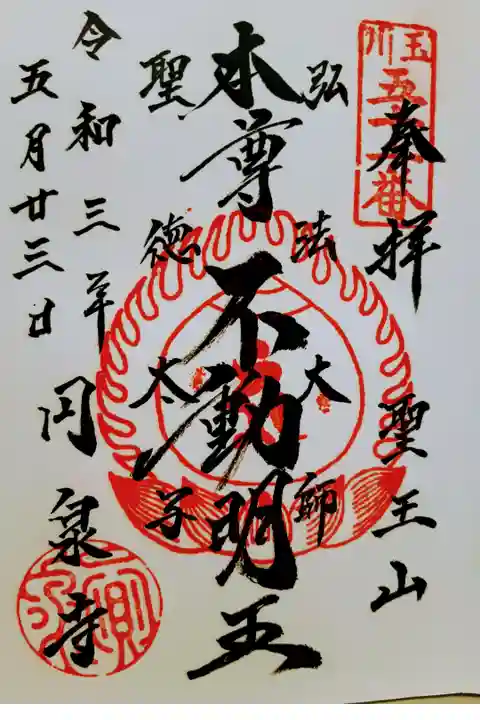 奉拝
聖王山
弘法大師
本尊 不動明王
聖徳太子
令和三年
五月廿三日
円泉寺